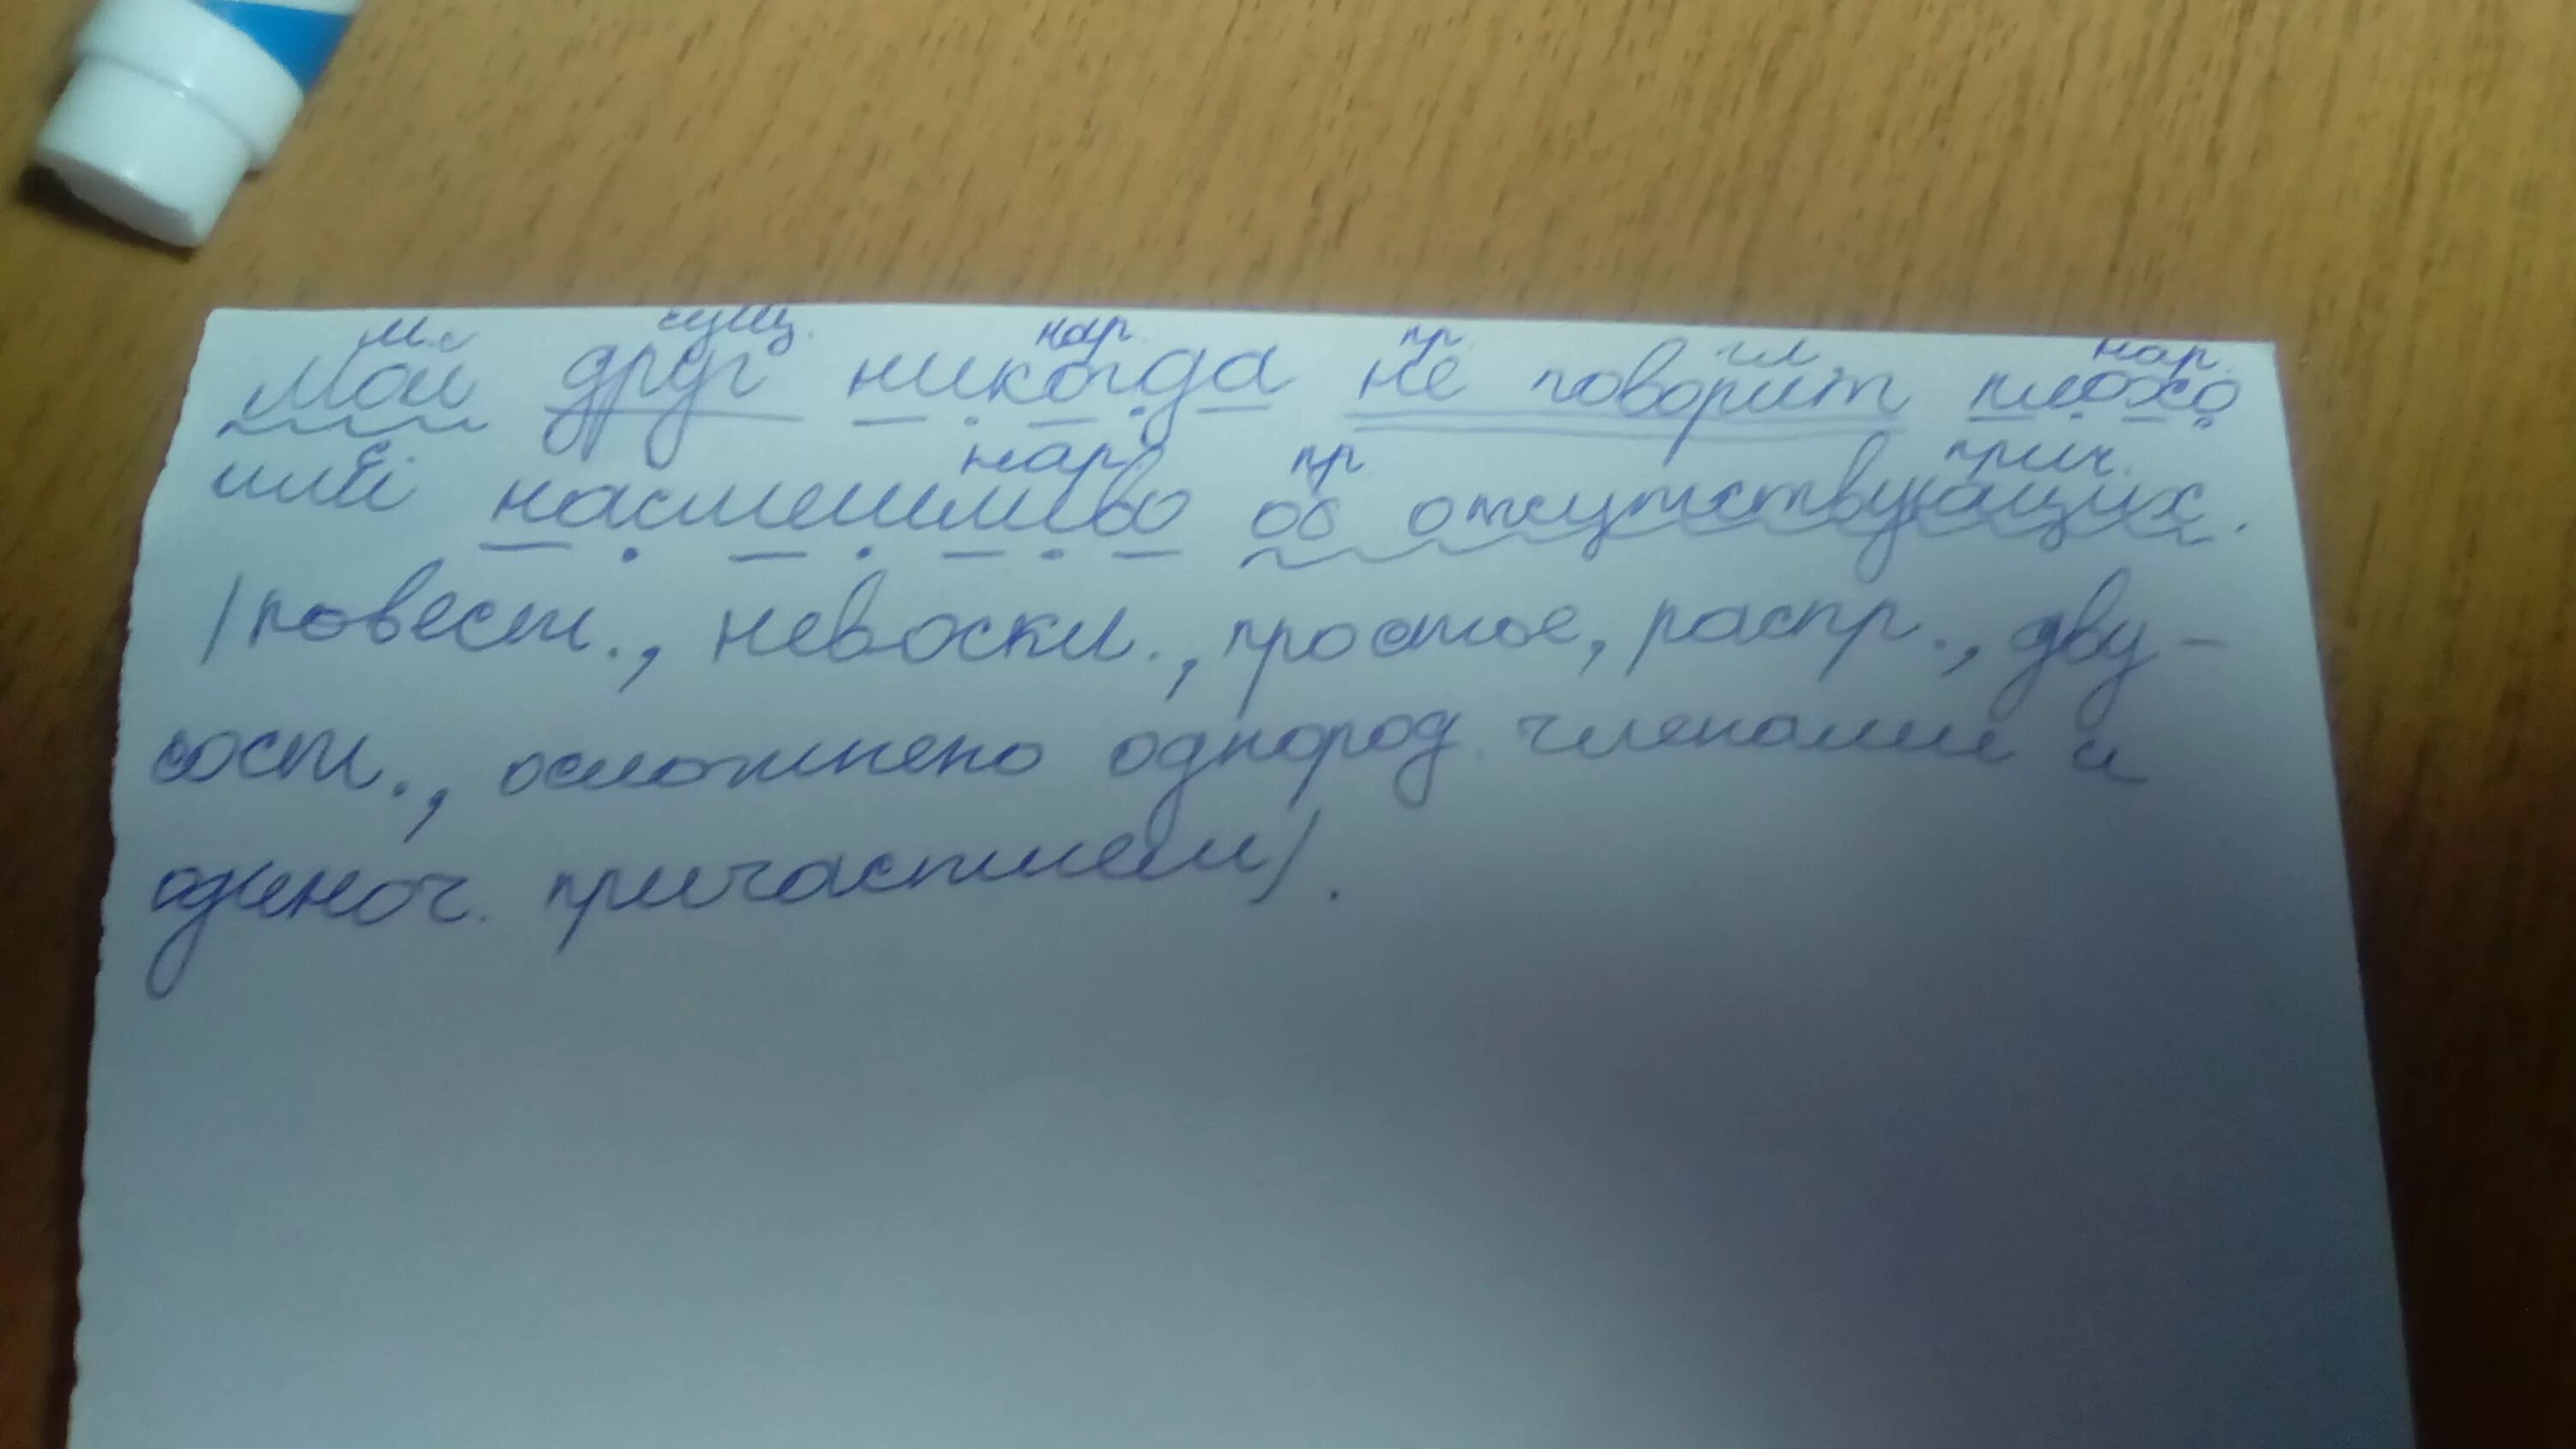 м.с сущ. нар. пр гл. нар.
Мой друг никогда не говорит плохо
с нар. пр. прич.
или насмешливо об отсутствующих.
/повест., невоскл., простое, распр., дву-
сост., осложнено однород. членами и
одиноч. причастием/.